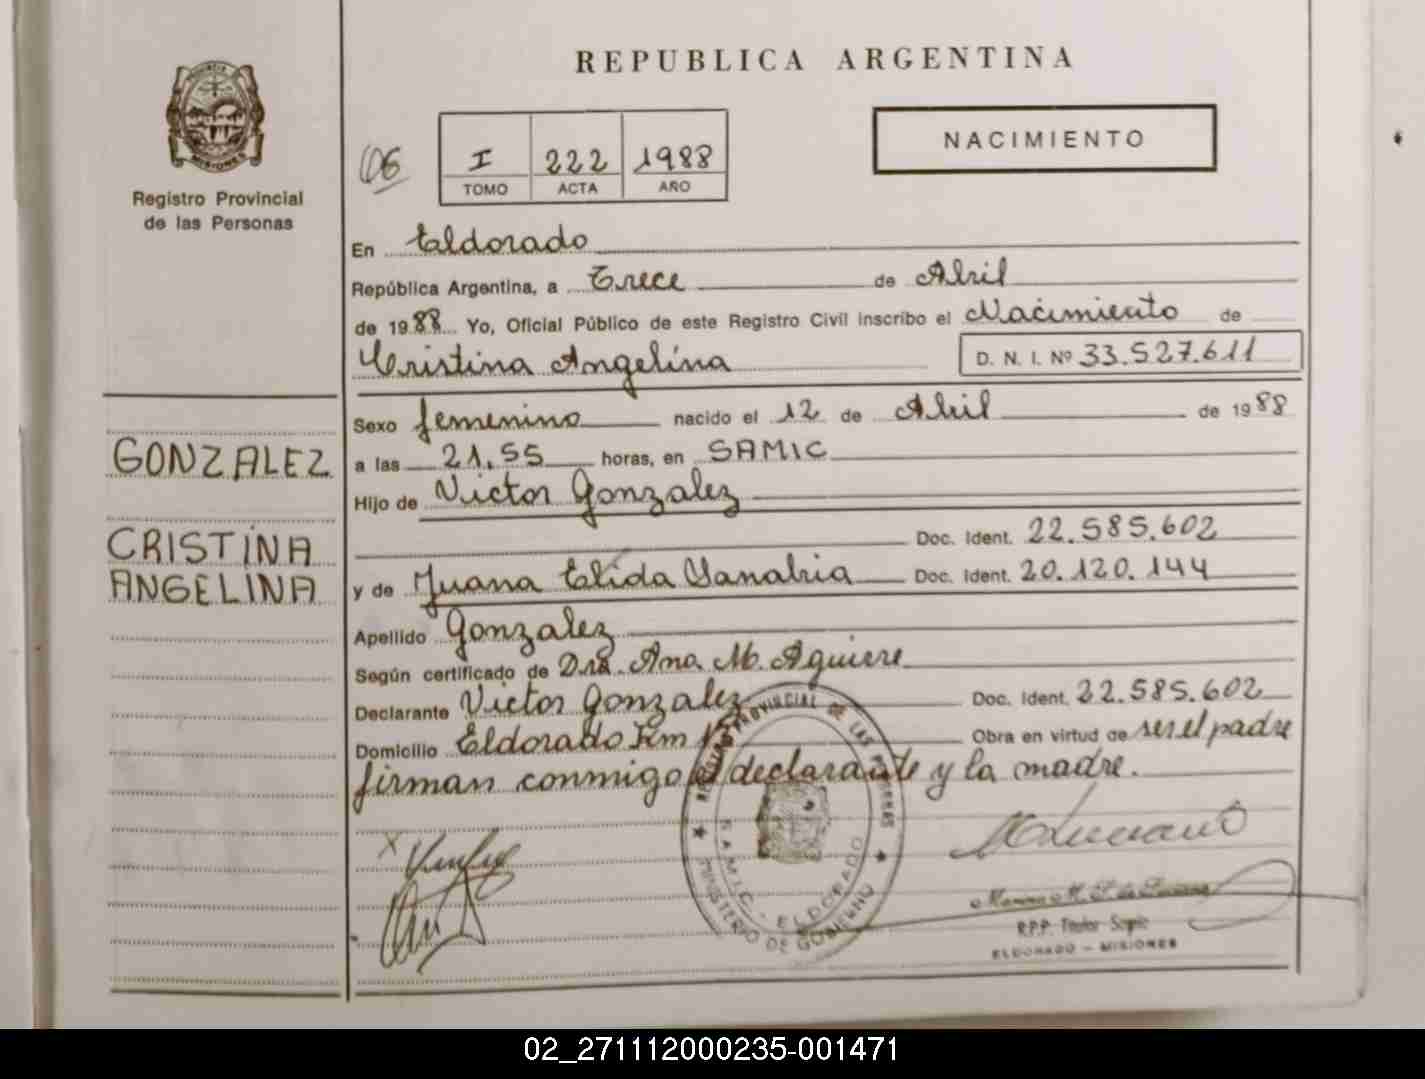 REPUBLICA ARGENTINA
PROVINCIA
MISIONES
Registro Provincial
de las Personas
106
I 222 1988
TOMO ACTA AÑO
NACIMIENTO
En Eldorado
República Argentina, a Trece de Abril
de 1988 Yo, Oficial Público de este Registro Civil inscribo el Nacimiento de
Cristina Angelina D. N. I. Nº 33.527.611
Sexo femenino nacido el 12 de Abril de 1988
GONZALEZ
a las 21,55 horas, en SAMIC
Hijo de Victor Gonzalez
Doc. Ident. 22.585.602
CRISTINA
ANGELINA
y de Juana Elida Sanabria Doc. Ident. 20.120.144
Apellido Gonzalez
Según certificado de Dra. Ana M. Aguirre
Declarante Victor Gonzalez Doc. Ident. 22.585.602
Domicilio Eldorado Km Obra en virtud de ser el padre
firman conmigo el declarante y la madre.
REGISTRO PROVINCIAL DE LAS PERSONAS
SAMIC - ELDORADO
MINISTERIO DE GOBIERNO
R.P.P. Titular
ELDORADO - MISIONES
02_271112000235-001471